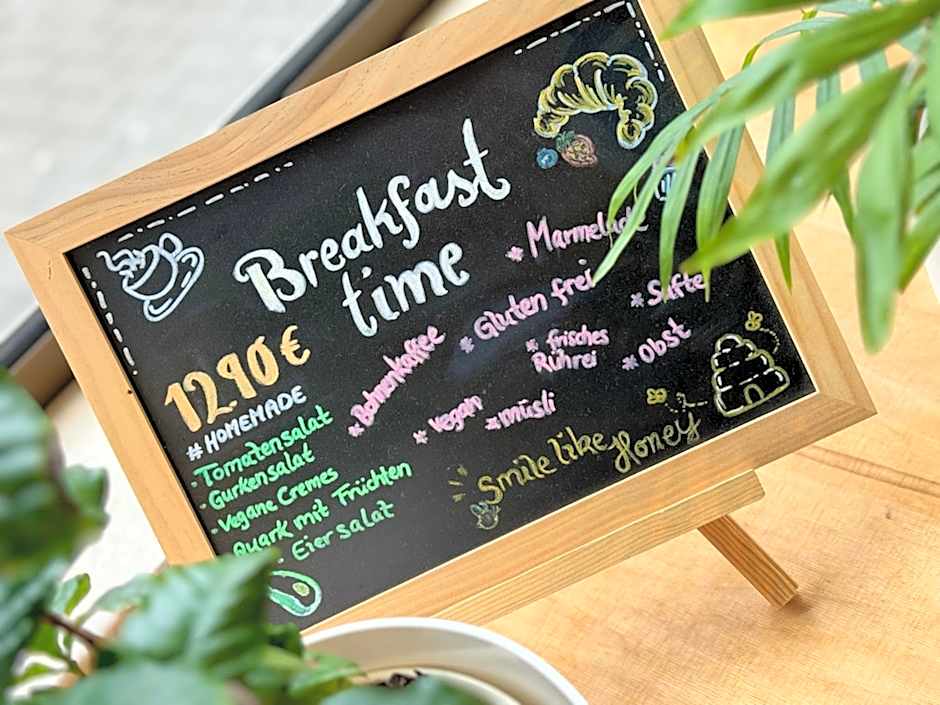 Breakfast
time
12.90 €
#HOMEMADE
· Tomatensalat
· Gurkensalat
· Vegane Cremes
· Quark mit Früchten
· Eiersalat
* Bohnenkaffee
* Marmelade
* Gluten frei
* Säfte
* frisches
Rührei
* Obst
* Vegan
* müsli
Smile like Honey